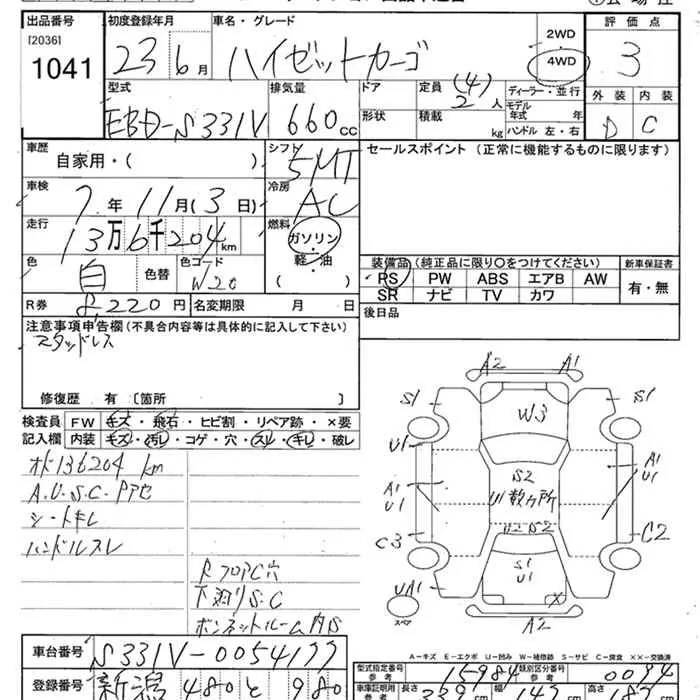 出品番号 初度登録年月 車名・グレード 評価点
[2036] 1041 23 6月 ハイゼットカーゴ 2WD 4WD 3
型式 排気量 ドア 定員 (4) 2人 ディーラー・並行 外装 内装
EBD-S331V 660cc 形状 積載 kg モデル年式 年 ハンドル 左・右 D C
車歴 自家用・( シフト 5MT セールスポイント (正常に機能するものに限ります)
車検 7年 11月(3日) 冷房 AC
走行 13万6千204km 燃料 ガソリン・軽油 ( )
色 白 色替 色コード W20 装備品 (純正品に限り〇をつけてください) 新車保証書
PS PW ABS エアB AW 有・無
SR ナビ TV カワ
R券 220円 名変期限 月 日 後日品
注意事項申告欄(不具合内容等は具体的に記入して下さい)
スタッドレス
修復歴 有 〔箇所
検査員 FW キズ・飛石・ヒビ割・リペア跡・×要
記入欄 内装 キズ・汚レ・コゲ・穴・スレ・キレ・破レ
オド136204km
A.U.S.C.
シートキレ
ハンドルスレ
下廻りS.C
ボンネットルーム内S
A2 A1
S1 W3 S1
U1 A1 U1 S2 U数ヵ所 A1 U1
C3 U2 S2 C2
S1 U1
UA1 スペア X A2
A-キズ E-エクボ U-凹み W-補修跡 S-サビ C-腐食 XX-交換済
車台番号 S331V-0054177 型式指定番号 参考 15984 類別区分番号 参考 0094
登録番号 新潟 480 と 980 車庫証明用 参考 長さ 339 147 187